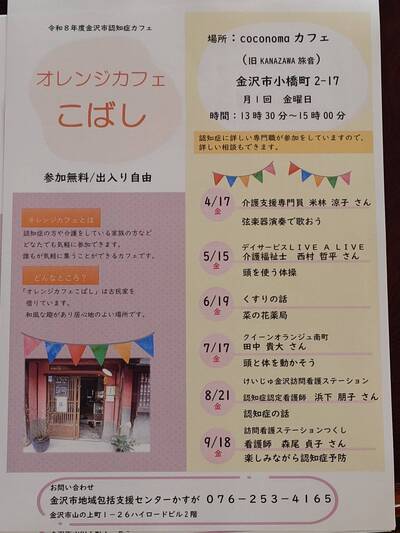 令和8年度金沢市認知症カフェ
オレンジカフェ
こばし
参加無料/出入り自由
場所：coconomaカフェ
（旧KANAZAWA旅音）
金沢市小橋町2-17
月1回 金曜日
時間：13時30分〜15時00分
認知症に詳しい専門職が参加をしていますので、
詳しい相談もできます。
オレンジカフェとは
認知症の方や介護をしている家族の方など
どなたでも気軽に参加できます。
誰もが気軽に集うことができるカフェです。
どんなところ？
「オレンジカフェこばし」は古民家を
借りています。
和風な趣があり居心地のよい場所です。
4/17 介護支援専門員 米林 涼子 さん
金
弦楽器演奏で歌おう
デイサービスLIVE A LIVE
5/15 介護福祉士 西村 哲平 さん
金
頭を使う体操
6/19 くすりの話
金
菜の花薬局
クイーンオランジュ南町
7/17 田中 貴大 さん
金
頭と体を動かそう
けいじゅ金沢訪問看護ステーション
8/21 認知症認定看護師 浜下 朋子 さん
金
認知症の話
訪問看護ステーションつくし
9/18 看護師 森尾 貞子 さん
金
楽しみながら認知症予防
お問い合わせ
金沢市地域包括支援センターかすが 076-253-4165
金沢市山の上町1-26ハイロードビル2階